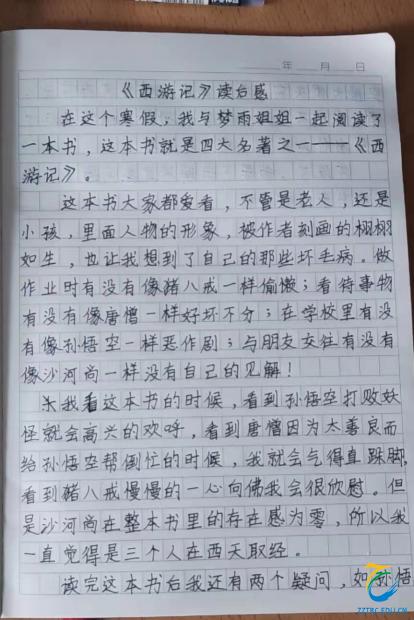 年 月 日
《西游记》读后感
在这个寒假,我与梦雨姐姐一起阅读了
一本书,这本书就是四大名著之一——《西
游记》。
这本书大家都爱看,不管是老人,还是
小孩,里面人物的形象,被作者刻画的栩栩
如生,也让我想到了自己的那些坏毛病。做
作业时有没有像猪八戒一样偷懒;看待事物
有没有像唐僧一样好坏不分;在学校里有没
有像孙悟空一样恶作剧;与朋友交往有没有
像沙河尚一样没有自己的见解!
我看这本书的时候,看到孙悟空打败妖
怪就会高兴的欢呼,看到唐僧因为太善良而
给孙悟空帮倒忙的时候,我就会气得直跺脚,
看到猪八戒慢慢的一心向佛我会很欣慰。但
是沙河尚在整本书里的存在感为零,所以我
一直觉得是三个人在西天取经。
读完这本书后我还有两个疑问,如孙悟
ZZTRC.EDU.CN